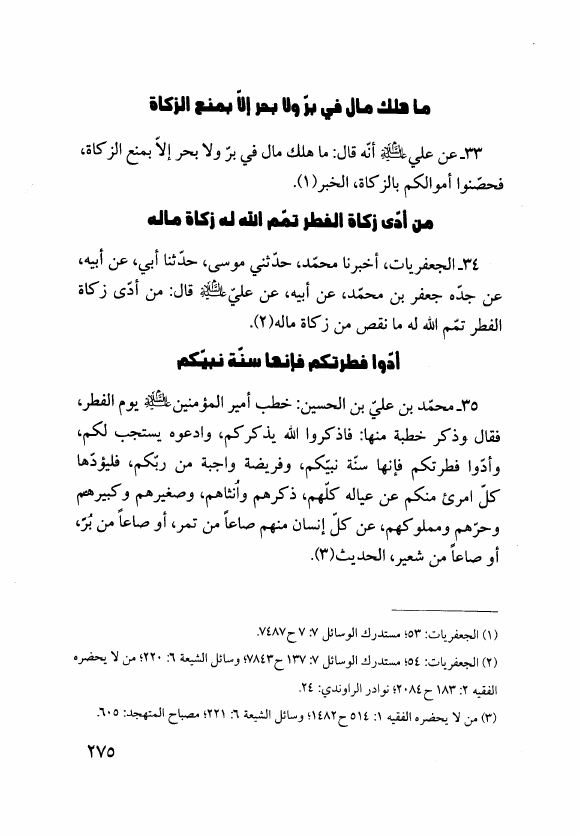 ما هلك مال في برّ ولا بحر إلاّ بمنع الزكاة
٣٣ـ عن علي عليه السلام أنّه قال: ما هلك مال في برّ ولا بحر إلاّ بمنع الزكاة،
فحصّنوا أموالكم بالزكاة، الخبر(١).
من أدّى زكاة الفطر تمّم الله له زكاة ماله
٣٤ـ الجعفريات، أخبرنا محمّد، حدّثني موسى، حدّثنا أبي، عن أبيه،
عن جدّه جعفر بن محمّد، عن أبيه، عن عليّ عليه السلام قال: من أدّى زكاة
الفطر تمّم الله له ما نقص من زكاة ماله(٢).
أدّوا فطرتكم فإنها سنّة نبيّكم
٣٥ـ محمّد بن عليّ بن الحسين: خطب أمير المؤمنين عليه السلام يوم الفطر،
فقال وذكر خطبة منها: فاذكروا الله يذكركم، وادعوه يستجب لكم،
وأدّوا فطرتكم فإنها سنّة نبيّكم، وفريضة واجبة من ربّكم، فليؤدّها
كلّ امرئ منكم عن عياله كلّهم، ذكرهم وأُنثاهم، وصغيرهم وكبيرهم
وحرّهم ومملوكهم، عن كلّ إنسان منهم صاعاً من تمر، أو صاعاً من بُرّ،
أو صاعاً من شعير، الحديث(٣).
(١) الجعفريات: ٥٣؛ مستدرك الوسائل ٧: ٧ ح٧٤٨٧.
(٢) الجعفريات: ٥٤؛ مستدرك الوسائل ٧: ١٣٧ ح٧٨٤٣؛ وسائل الشيعة ٦: ٢٢٠؛ من لا يحضره
الفقيه ٢: ١٨٣ ح٢٠٨٤؛ نوادر الراوندي: ٢٤.
(٣) من لا يحضره الفقيه ١: ٥١٤ ح١٤٨٢؛ وسائل الشيعة ٦: ٢٢١؛ مصباح المتهجد: ٦٠٥.
٢٧٥